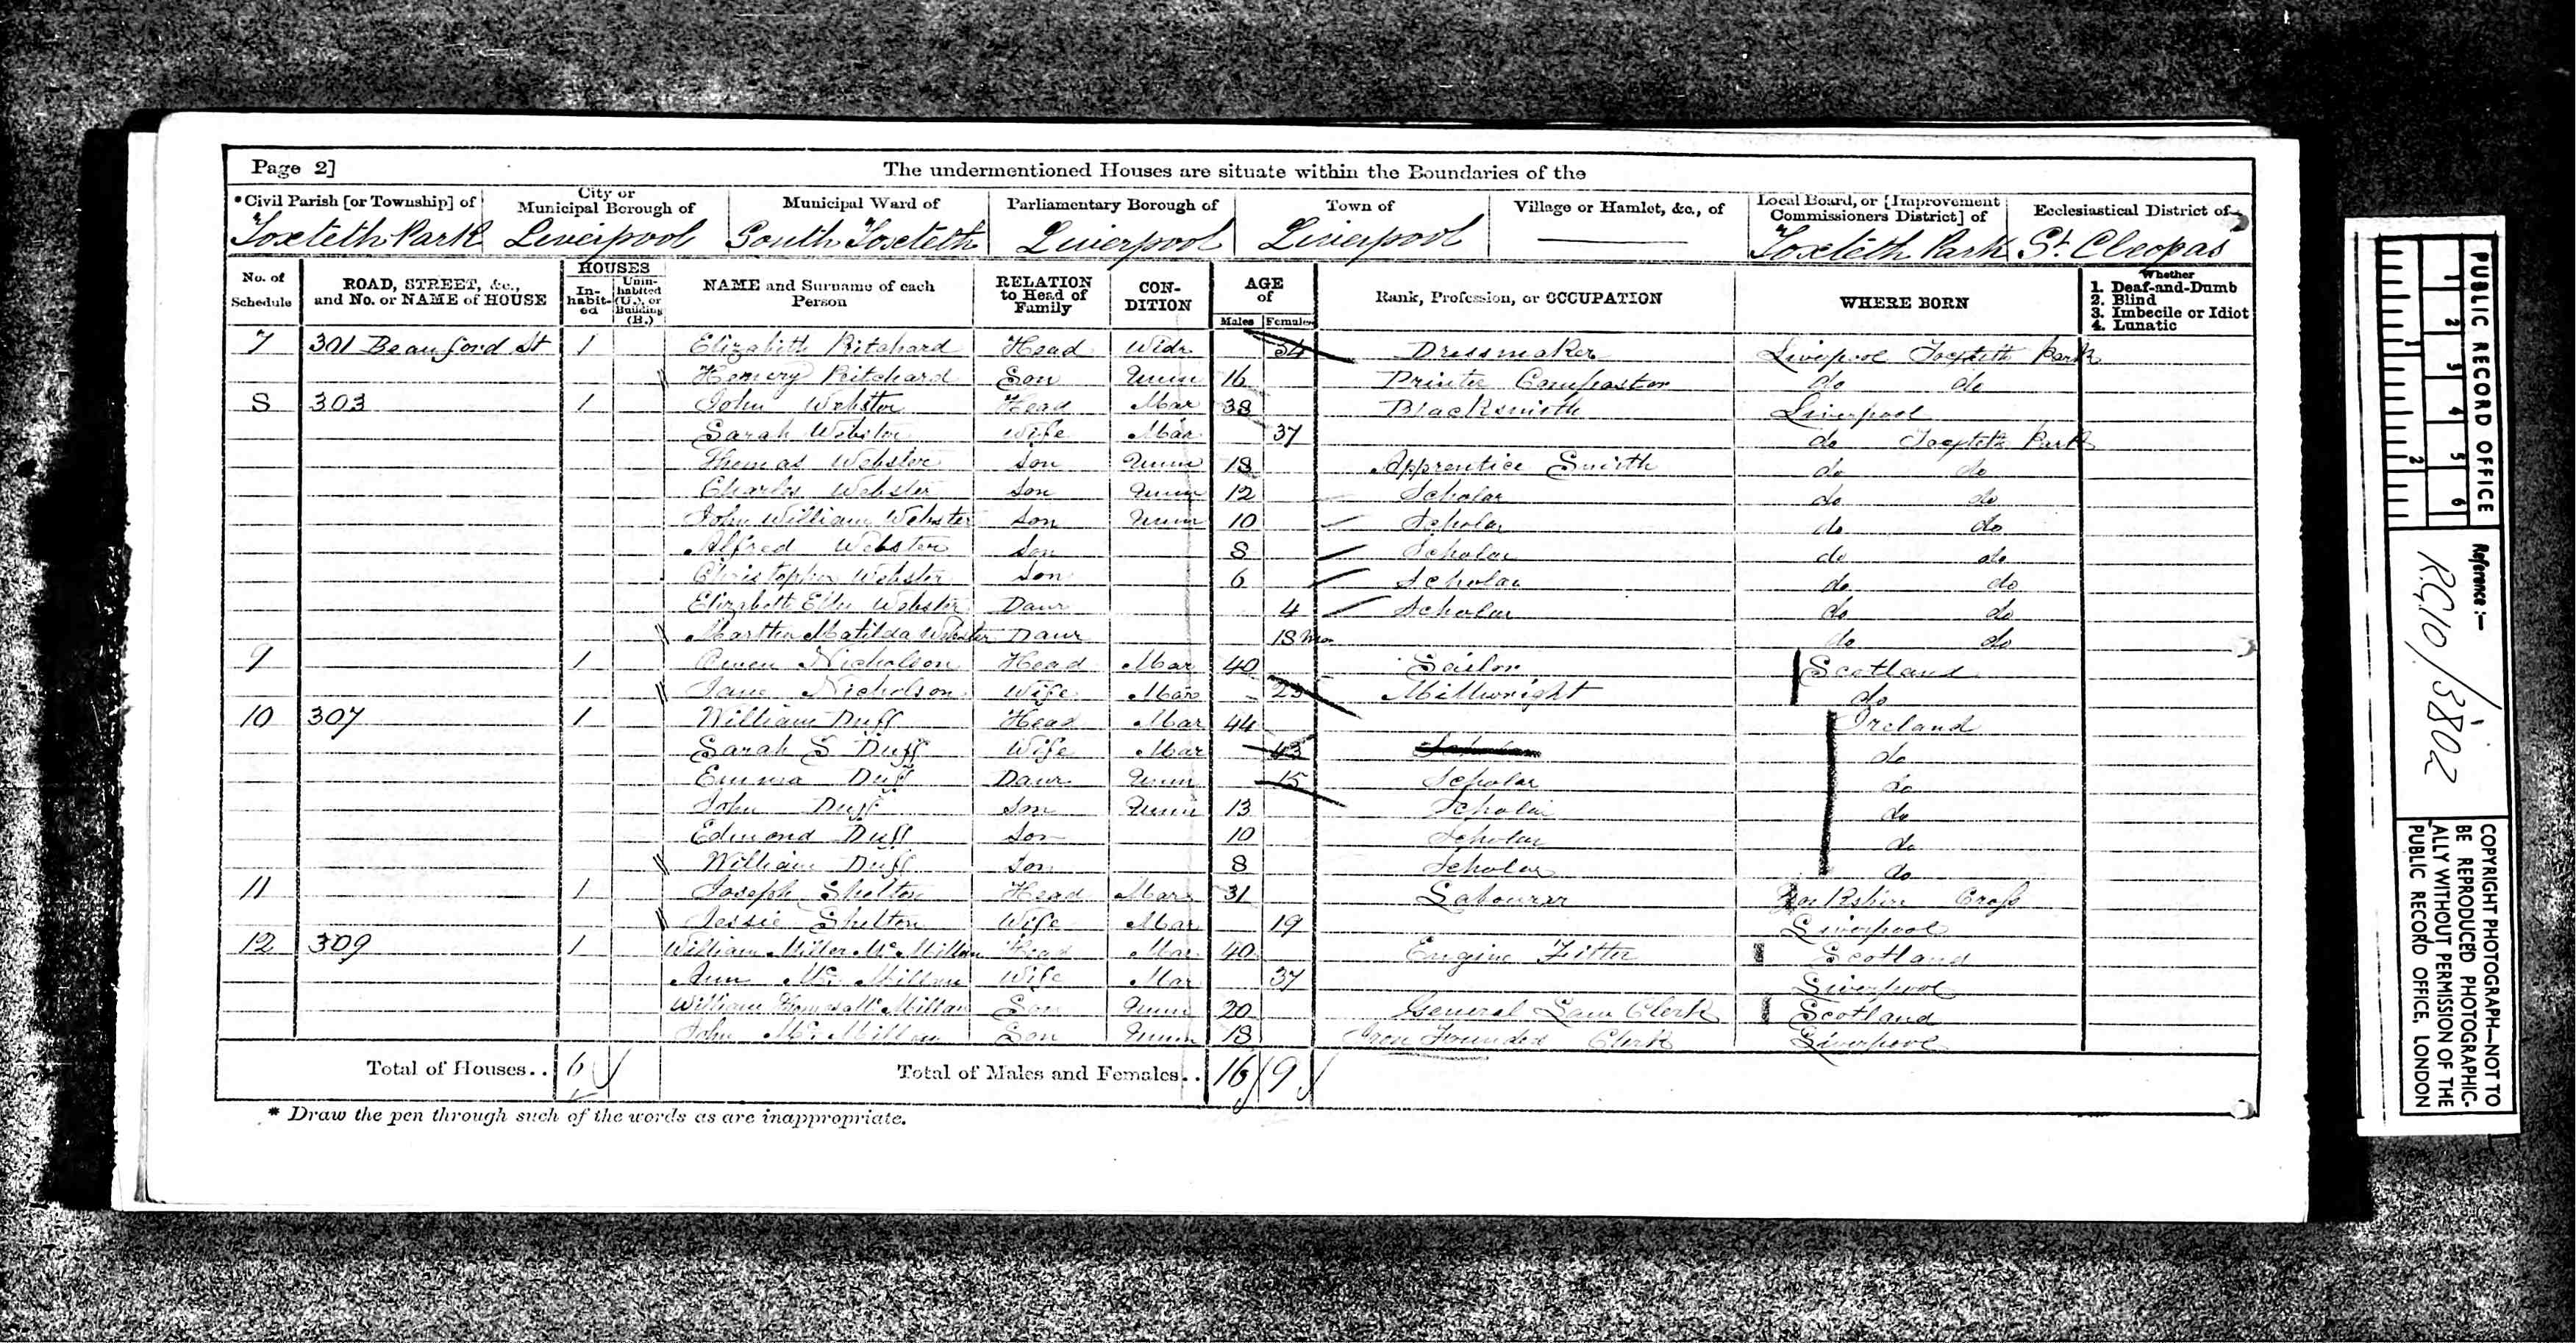 Page 2]
The undermentioned Houses are situate within the Boundaries of the
*Civil Parish [or Township] of
City or Municipal Borough of
Municipal Ward of
Parliamentary Borough of
Town of
Village or Hamlet, &c., of
Local Board, or [Improvement Commissioners District] of
Ecclesiastical District of
Toxteth Park Liverpool South Toxteth Liverpool Liverpool Toxteth Park St. Cleopas
No. of Schedule
ROAD, STREET, &c., and No. or NAME of HOUSE
HOUSES
In-habit-ed
Unin-habited (U.), or Building (B.)
NAME and Surname of each Person
RELATION to Head of Family
CON-DITION
AGE of
Males Females
Rank, Profession, or OCCUPATION
WHERE BORN
Whether
1. Deaf-and-Dumb
2. Blind
3. Imbecile or Idiot
4. Lunatic
7 301 Beauford St 1 Elizabeth Pritchard Head Widr 54 Dressmaker Liverpool Toxteth Park
Henery Pritchard Son Unm 16 Printer Compositor do do
8 303 1 John Webster Head Mar 38 Blacksmith Liverpool
Sarah Webster Wife Mar 37 do Toxteth Park
Thomas Webster Son Unm 18 Apprentice Smith do do
Charles Webster Son Unm 12 Scholar do do
John William Webster Son Unm 10 Scholar do do
Alfred Webster Son 8 Scholar do do
Christopher Webster Son 6 Scholar do do
Elizabeth Ellen Webster Daur 4 Scholar do do
Martha Matilda Webster Daur 18 Mo do do
9 1 Owen Nicholson Head Mar 40 Sailor Scotland
Jane Nicholson Wife Mar Millwright do
10 307 1 William Duff Head Mar 44 Ireland
Sarah S Duff Wife Mar 43 do
Emma Duff Daur Unm 15 Scholar do
John Duff Son Unm 13 Scholar do
Edmond Duff Son 10 Scholar do
William Duff Son 8 Scholar do
11 1 Joseph Shelton Head Mar 31 Labourer
Jessie Shelton Wife Mar 19 Liverpool
12 309 1 William Miller Mc Millan Head Mar 40 Engine Fitter Scotland
Ann Mc Millan Wife Mar 37 Liverpool
William Mc Millan Son Unm 20 General Law Clerk Scotland
John Mc Millan Son Unm 18 Iron Founders Clerk Liverpool
Total of Houses.. 6
Total of Males and Females.. 16 9
* Draw the pen through such of the words as are inappropriate.
PUBLIC RECORD OFFICE
1 2 3 4 5 6
1 2
Reference:—
RG10/3802
COPYRIGHT PHOTOGRAPH—NOT TO
BE REPRODUCED PHOTOGRAPHIC-
ALLY WITHOUT PERMISSION OF THE
PUBLIC RECORD OFFICE, LONDON